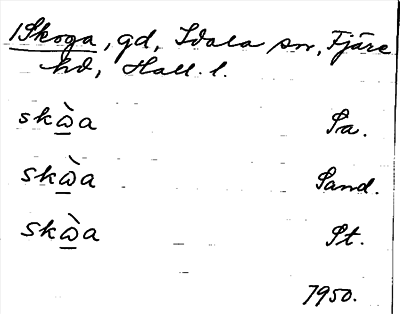 1Skoga, gd, Idala sn, Fjäre
hd, Hall. l.
skὼ̱a Sa.
skὼ̱a Sand.
skὼ̱a St.
1950.